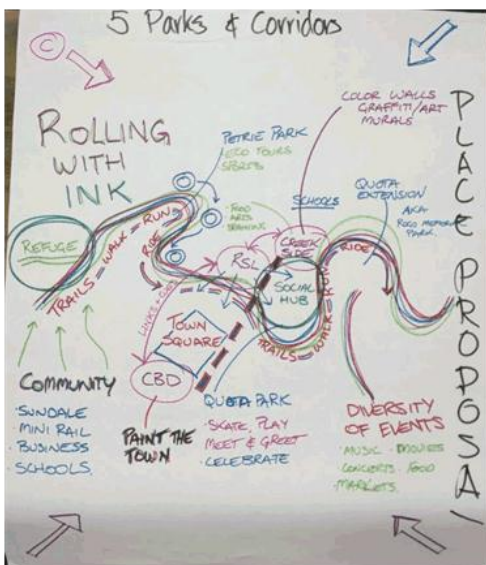 5 Parks & Corridors
C
ROLLING
WITH
INK
PLACE PROPOSAL
COLOR WALLS
GRAFFITI/ART
MURALS
PETRIE PARK
ECO TOURS
SPORTS
SCHOOLS
QUOTA
EXTENSION
AKA
PARK
FOOD
ARTS
REFUGE
TRAILS - WALK - RUN - RIDE
RSL
CREEK
SIDE
SOCIAL
HUB
RIDE
TRAILS - WALK
TOWN
SQUARE
CBD
COMMUNITY
· SUNDALE
· MINI RAIL
· BUSINESS
· SCHOOLS
PAINT THE
TOWN
QUOTA PARK
· SKATE, PLAY
MEET & GREET
· CELEBRATE
DIVERSITY
OF EVENTS
· MUSIC · MOVIES
CONCERTS · FOOD
MARKETS